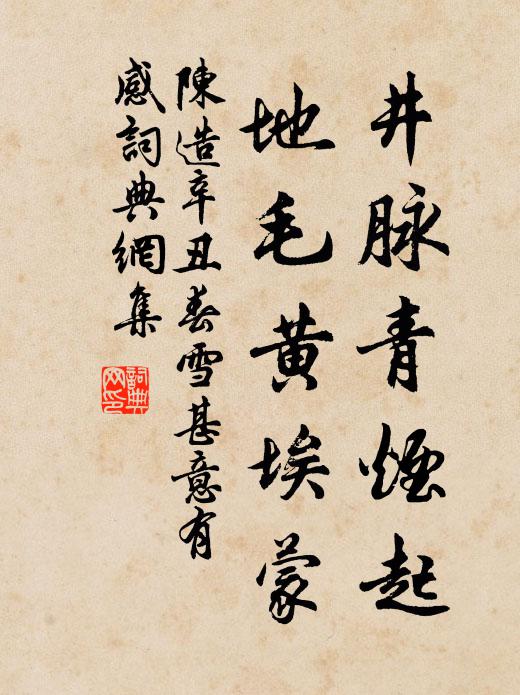 井脉青煙起
地毛黄埃蒙
陳造辛丑春雪甚意有
感詞典網集
詞典网印